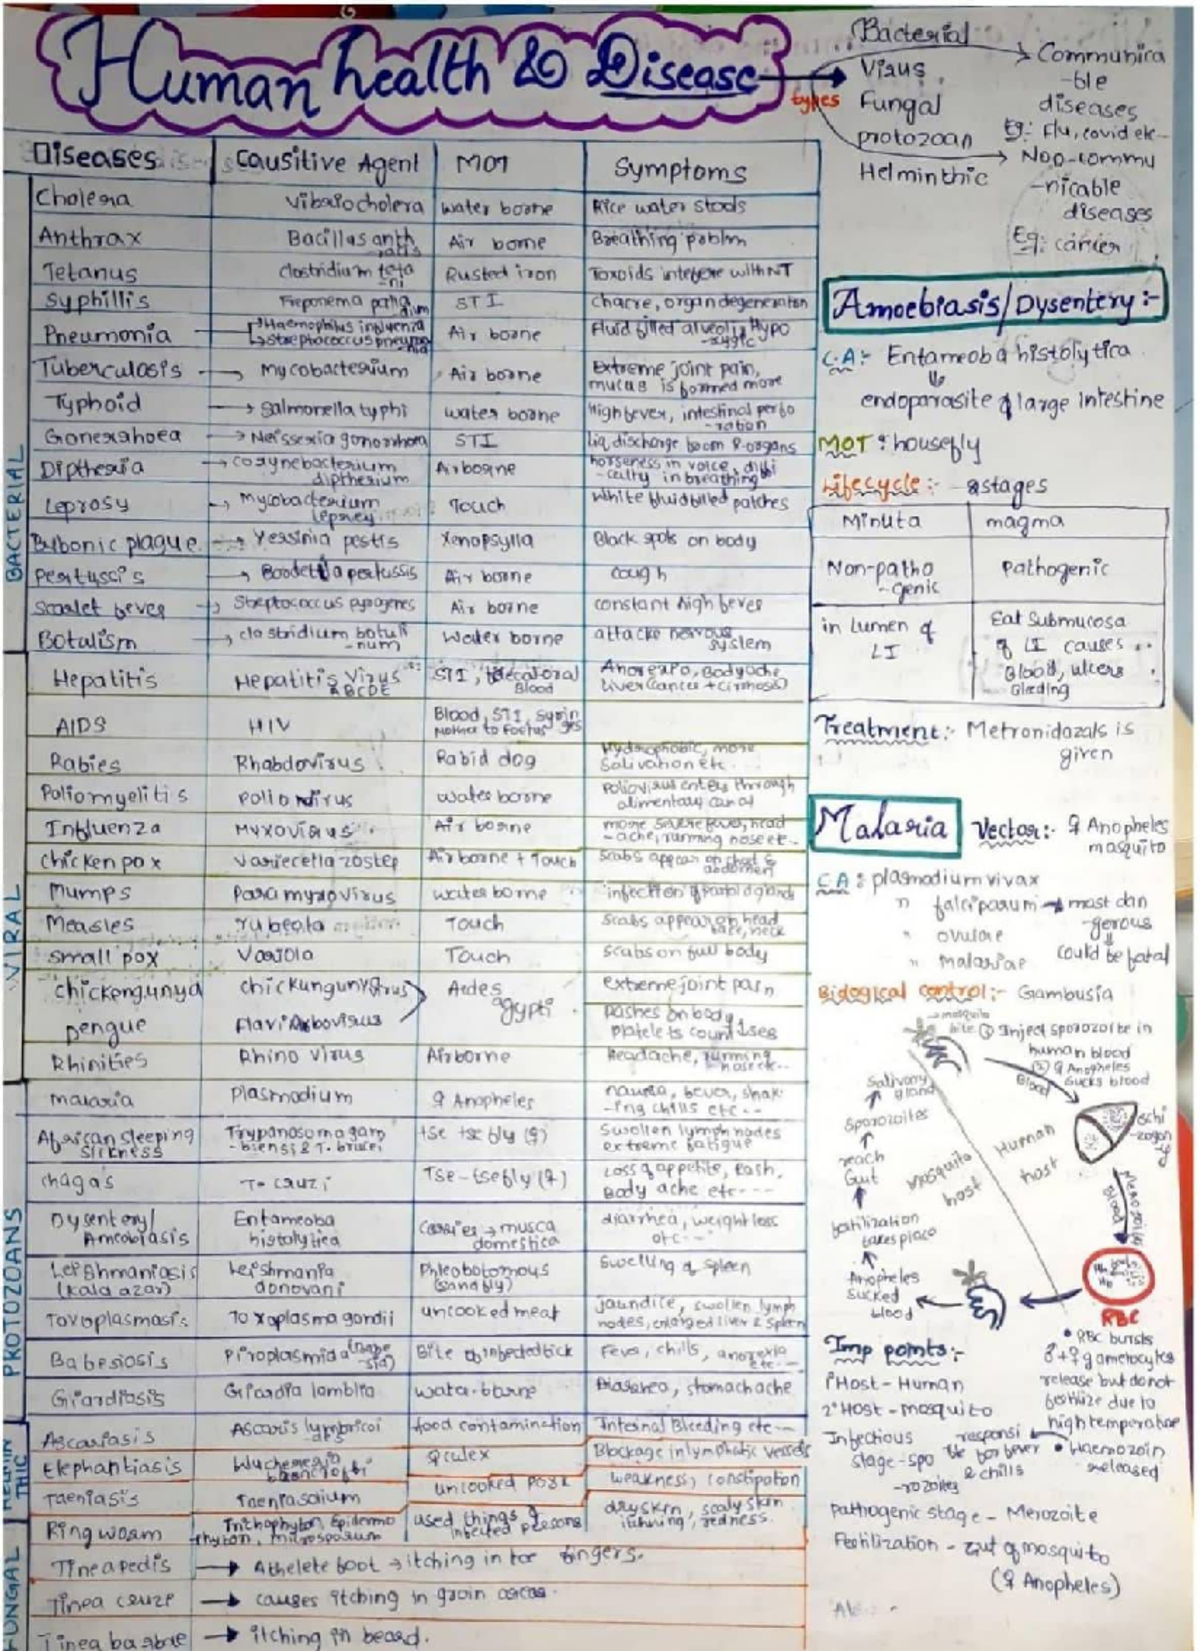 Human health & Disease
types
Bacterial
Virus
Fungal
protozoan
Helminthic
Communica
-ble
diseases
Eg: Flu, covid etc-
Non-commu
-nicable
diseases
Eg: cancer
Diseases Causitive Agent MOT Symptoms
BACTERIAL
Cholera Vibrio cholera water borne Rice water stools
Anthrax Bacillus anth Air borne Breathing problm
Tetanus clostridium teta
-ni Rusted iron Toxoids intefere with NT
Syphillis STI organ degeneration
Pneumonia Haemophilus
Streptococcus Air borne Fluid filled alveoli, Hypo
Tuberculosis → Mycobacterium Air borne Extreme joint pain,
mucus is formed more
Typhoid → Salmonella typhi water borne High fever, intestinal perfo
-ration
Gonerrhoea → Neisseria gonorrhoea STI liq discharge from R-organs
Diptheria → corynebacterium
diptherium Airborne horseness in voice, diffi
-culty in breathing
Leprosy → Mycobacterium
leprey Touch White fluid filled patches
Bubonic plague → Yersinia pestis Xenopsylla Black spots on body
Pertussis → pertussis Air borne cough
Scarlet fever → Streptococcus pyogenes Air borne constant high fever
Botulism → clostridium botuli
-num Water borne attacke nervous
system
VIRAL
Hepatitis Hepatitis Virus
ABCDE STI,
Blood Bodyache
Liver (cancer + cirrhosis)
AIDS HIV Blood, STI, syrin
ges Mother to Foetus
Rabies Rhabdovirus Rabid dog Hydrophobic, more
salivation etc.
Poliomyelitis polio virus water borne poliovirus enters through
alimentary canal
Influenza Myxovirus Air borne more severe fever, head
-ache, running nose etc--
chicken pox zoster Air borne + Touch Scabs appear on chest &
abdomen
Mumps Para myxovirus water borne infection of parotid glands
Measles rubeola Touch Scabs appear on head
face, neck
small pox Variola Touch scabs on full body
chickengunya Aedes
agypti extreme joint pain
Dengue Flavi Arbovirus Rashes on body,
platelets count ses
Rhinities Rhino virus Airborne headache, running
nose etc--
PROTOZOANS
malaria Plasmodium ♀ Anopheles fever, shak
-ing chills etc--
African sleeping
sickness Trypanosoma gam
-biensi & T. brucei tse tse fly (♀) Swollen lymph nodes
extreme fatigue
chagas T. cruzi Tse-tse fly (♀) Loss of appetite, rash,
Body ache etc----
Dysentery/
Amoebiasis Entamoeba
histolytica Carries → musca
domestica diarrhea, weight loss
etc--
Leishmaniasis
(kala azar) Leishmania
donovani Phlebotomous
(sandfly) Swelling of spleen
Toxoplasmosis Toxoplasma gondii uncooked meat jaundice, swollen lymph
nodes, enlarged liver & spleen
Babesiosis Piroplasmida Bite of infected tick Fever, chills, anorexia
etc--
Giardiasis Giardia lamblia water-borne Diarrhea, stomachache
HELMIN
THIC
Ascariasis Ascaris food contamination Internal Bleeding etc--
Elephantiasis ♀ culex Blockage in lymphatic vessels
Taeniasis Taenia solium uncooked pork weakness, constipation
FUNGAL
Ring worm microsporum used things of
infected persons dry skin, scaly skin
itching, redness.
Tinea pedis → Athelete foot → itching in toe fingers.
→ causes itching in groin areas.
Tinea barbae → itching in beard.
Amoebiasis/Dysentery:-
C.A:- Entameoba histolytica
endoparasite of large Intestine
MOT: housefly
Lifecycle:- 2 stages
Minuta magma
Non-patho
-genic Pathogenic
in Lumen of
LI Eat Submucosa
of LI causes
Blood, ulcers
Bleeding
Treatment:- Metronidazals is
given
Malaria Vector:- ♀ Anopheles
mosquito
C.A: plasmodium vivax
" falciparum → most dan
-gerous
" ovulae
" malariae could be fatal
Biological control:- Gambusia
mosquito
bite ① Inject sporozoite in
human blood
② ♀ Anopheles
sucks blood
Blood
Salivary
gland
Sporozoites
reach
Gut
fertilization
takes place
Anopheles
sucked
blood
Mosquito
host
Human
host
schi
-zogony
Merozoites
Blood
RBC
Imp points:-
1° Host - Human
2° Host - mosquito
Infectious
stage - spo
-rozoites
• RBC bursts
♂+♀ gametocytes
release but do not
fertilize due to
high temperature
• Haemozoin
released
responsi
ble for fever
& chills
Pathogenic stage - Merozoite
Fertilization - Gut of mosquito
(♀ Anopheles)